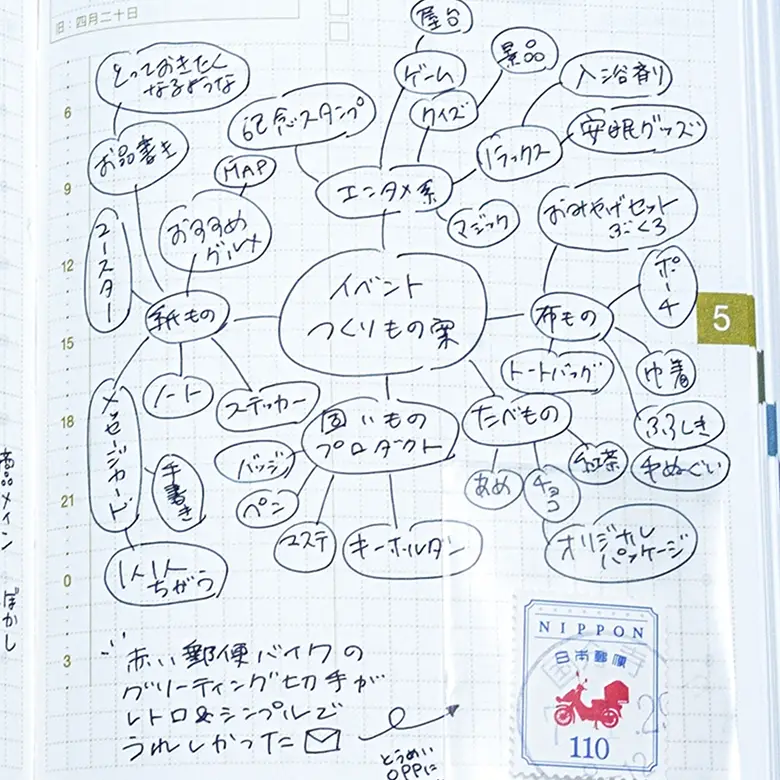 旧：四月二十日
屋台
景品
ゲーム
クイズ
入浴剤
安眠グッズ
リラックス
とっておきたく
なるような
お品書き
記念スタンプ
MAP
おすすめ
グルメ
エンタメ系
マジック
おみやげセット
ふくろ
コースター
紙もの
イベント
つくりもの案
布もの
ポーチ
トートバッグ
巾着
ふろしき
手ぬぐい
ノート
ステッカー
メッセージカード
手書き
1人1人
ちがう
固いもの
プロダクト
バッジ
ペン
コステ
キーホルダー
たべもの
あめ
チョコ
紅茶
オリジナル
パッケージ
6
9
12
15
18
21
0
3
5
商品メイン ぼかし
赤い郵便バイクの
グリーティング切手が
レトロ&シンプルで
うれしかった
とうめい
OPPに
NIPPON
日本郵便
110